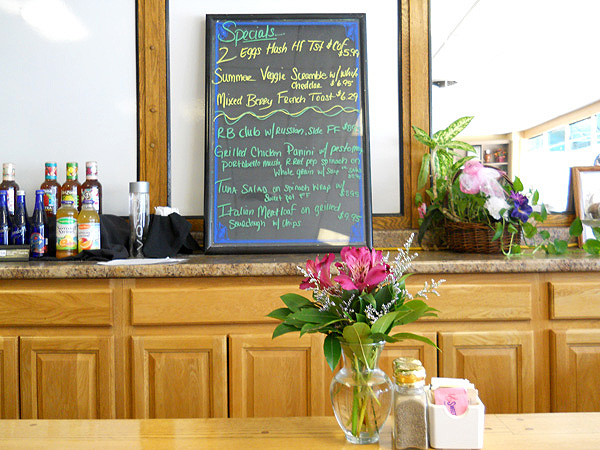 Specials
2 Eggs Hash Hf Tst & Cof $5.99
Summer Veggie Scramble w/ White
Cheddar $6.95
Mixed Berry French Toast $6.29
RB Club w/ Russian, Side FF
Grilled Chicken Panini w/ pesto mayo
portobello mush, R. Red pep spinach on
Whole grain w/
Tuna Salad on Spinach Wrap w/ $8.95
Sweet pot FF
Italian Meatloaf on grilled
Sourdough w/ chips $9.95